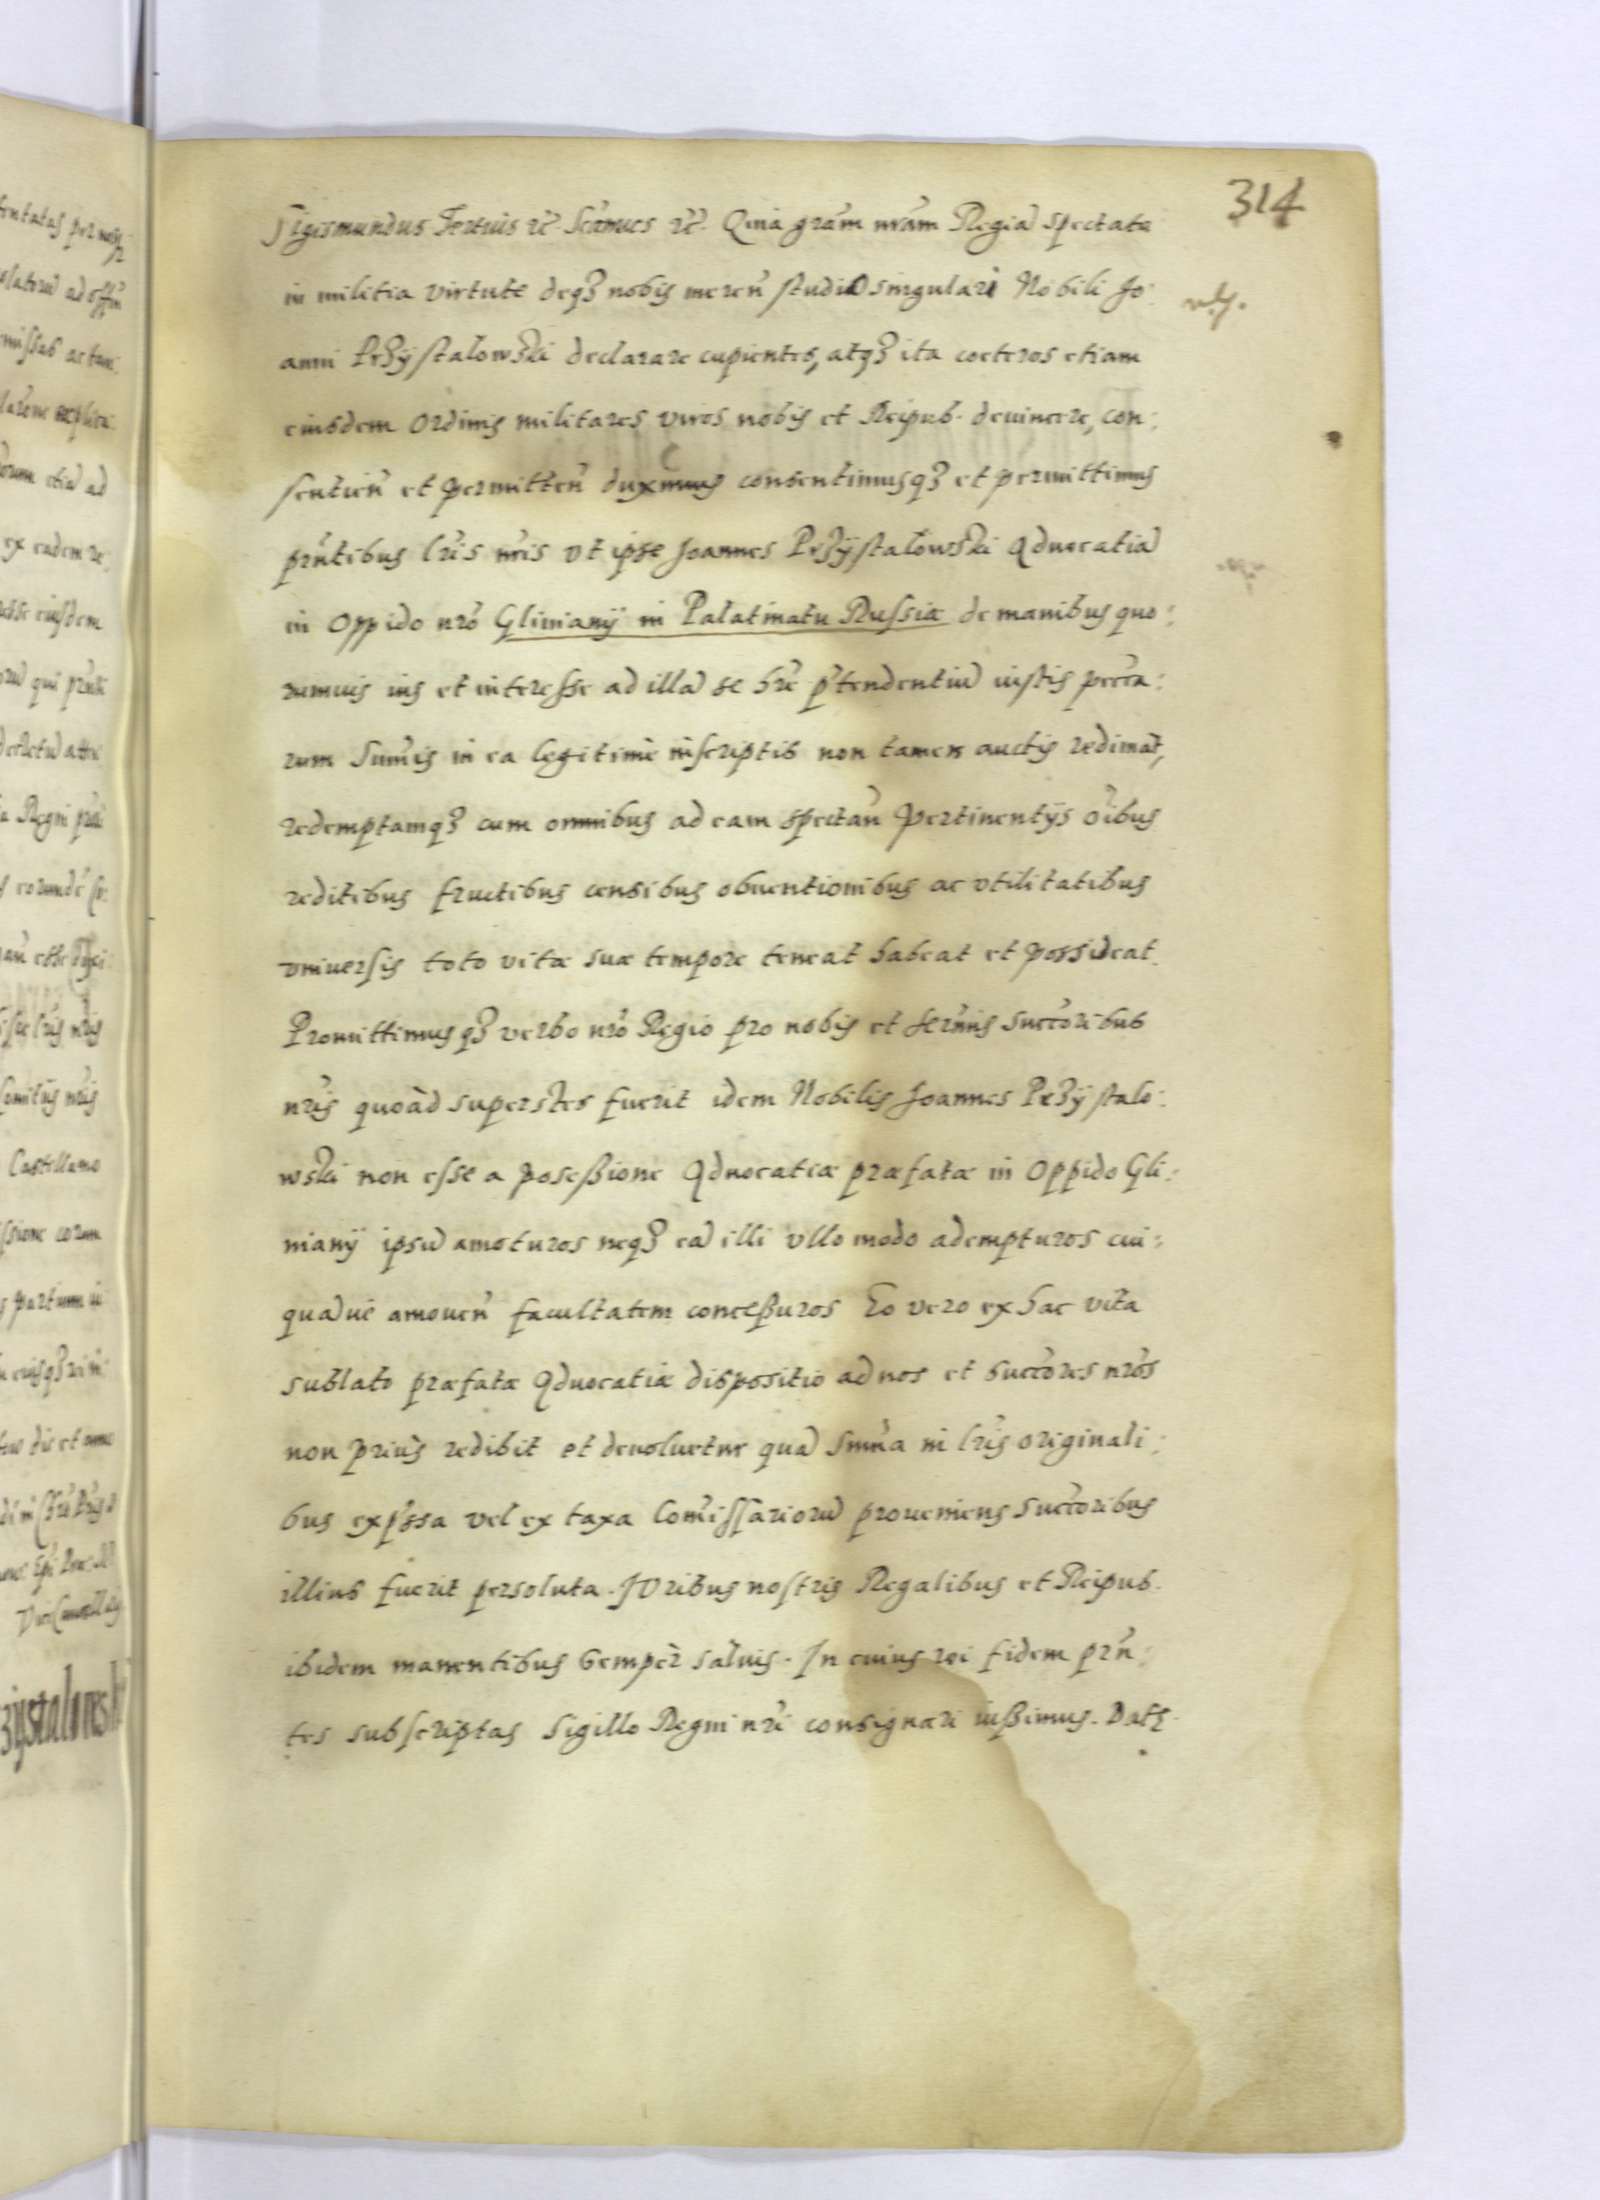 314
Sigismundus Tertius rc̃. Scãmus rc̃. Quia grãm nrãm Regiã spectata
in militia virtute deq3 nobis meren̄ studio singulari Nobili Jo:
anni Przÿstalowski declarare cupientes, atq3 ita coeteros etiam
eiusdem Ordinis militares viros nobis et Reipub. devincere, con:
sentien̄ et permitten̄ duximus consentimusq3 et permittimus
prñtibus lrĩs nrĩs vt ipse Joannes Przÿstalowski Aduocatiã
in Oppido nrõ Glinianÿ in Palatinatu Russiæ de manibus quo:
rumuis ius et interesse ad illã se hrẽ p̃tendentiũ iustis pecca:
rum Sum̃is in ea legitimè inscriptis non tamen auctis redimat,
redemptamq3 cum omnibus ad eam spectan̄ pertinentÿs oĩbus
reditibus fructibus censibus obuentionibus ac vtilitatibus
vniuersis toto vitæ suæ tempore teneat habeat et possideat.
Promittimusq3 verbo nrõ Regio pro nobis et serm̃is succoribus
nrĩs quoàd superstes fuerit idem Nobilis Joannes Przÿstalo:
wski non esse a posessione Aduocatiæ præfatæ in Oppido Gli:
nianÿ ipsũ amoturos neq3 eã illi vllo modo adempturos cui:
quãue amouen̄ facultatem concessuros Eo vero ex hac vita
sublato præfatæ Aduocatiæ dispositio ad nos et succores nrõs
non priùs redibit et deuoluetur quã Sum̃a in lrĩs originali:
bus exp̃ssa vel ex taxa Com̃issariorũ proueniens succoribus
illius fuerit persoluta. JVribus nostris Regalibus et Reipub.
ibidem manentibus sempèr saluis. In cuius rei fidem prñ:
tes subscriptas Sigillo Regni nrĩ consignari iussimus. Dat